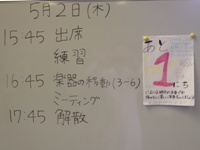 5月2日(木)
15:45 出席
練習
16:45 楽器の移動(3-6)
ミーティング
17:45 解散
あと
1
にち